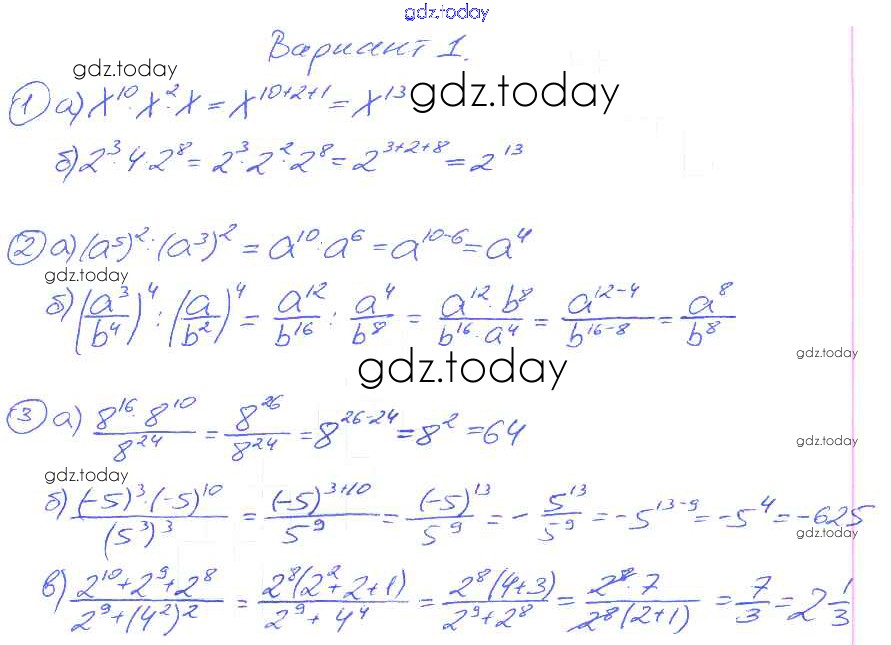 gdz.today
Вариант 1.
gdz.today
① а) x¹⁰·x²·x = x¹⁰⁺²⁺¹ = x¹³ gdz.today
б) 2³·4·2⁸ = 2³·2²·2⁸ = 2³⁺²⁺⁸ = 2¹³
② а) (a⁵)² : (a³)² = a¹⁰ : a⁶ = a¹⁰⁻⁶ = a⁴
gdz.today
б) (a³/b⁴)⁴ : (a/b²)⁴ = a¹²/b¹⁶ : a⁴/b⁸ = a¹²·b⁸/b¹⁶·a⁴ = a¹²⁻⁴/b¹⁶⁻⁸ = a⁸/b⁸
gdz.today
gdz.today
③ а) 8¹⁶·8¹⁰/8²⁴ = 8²⁶/8²⁴ = 8²⁶⁻²⁴ = 8² = 64
gdz.today
gdz.today
б) (-5)³·(-5)¹⁰/(5³)³ = (-5)³⁺¹⁰/5⁹ = (-5)¹³/5⁹ = -5¹³/5⁹ = -5¹³⁻⁹ = -5⁴ = -625
gdz.today
в) 2¹⁰+2⁹+2⁸/2⁹+(4²)² = 2⁸(2²+2+1)/2⁹+4⁴ = 2⁸(4+3)/2⁹+2⁸ = 2⁸·7/2⁸(2+1) = 7/3 = 2 1/3